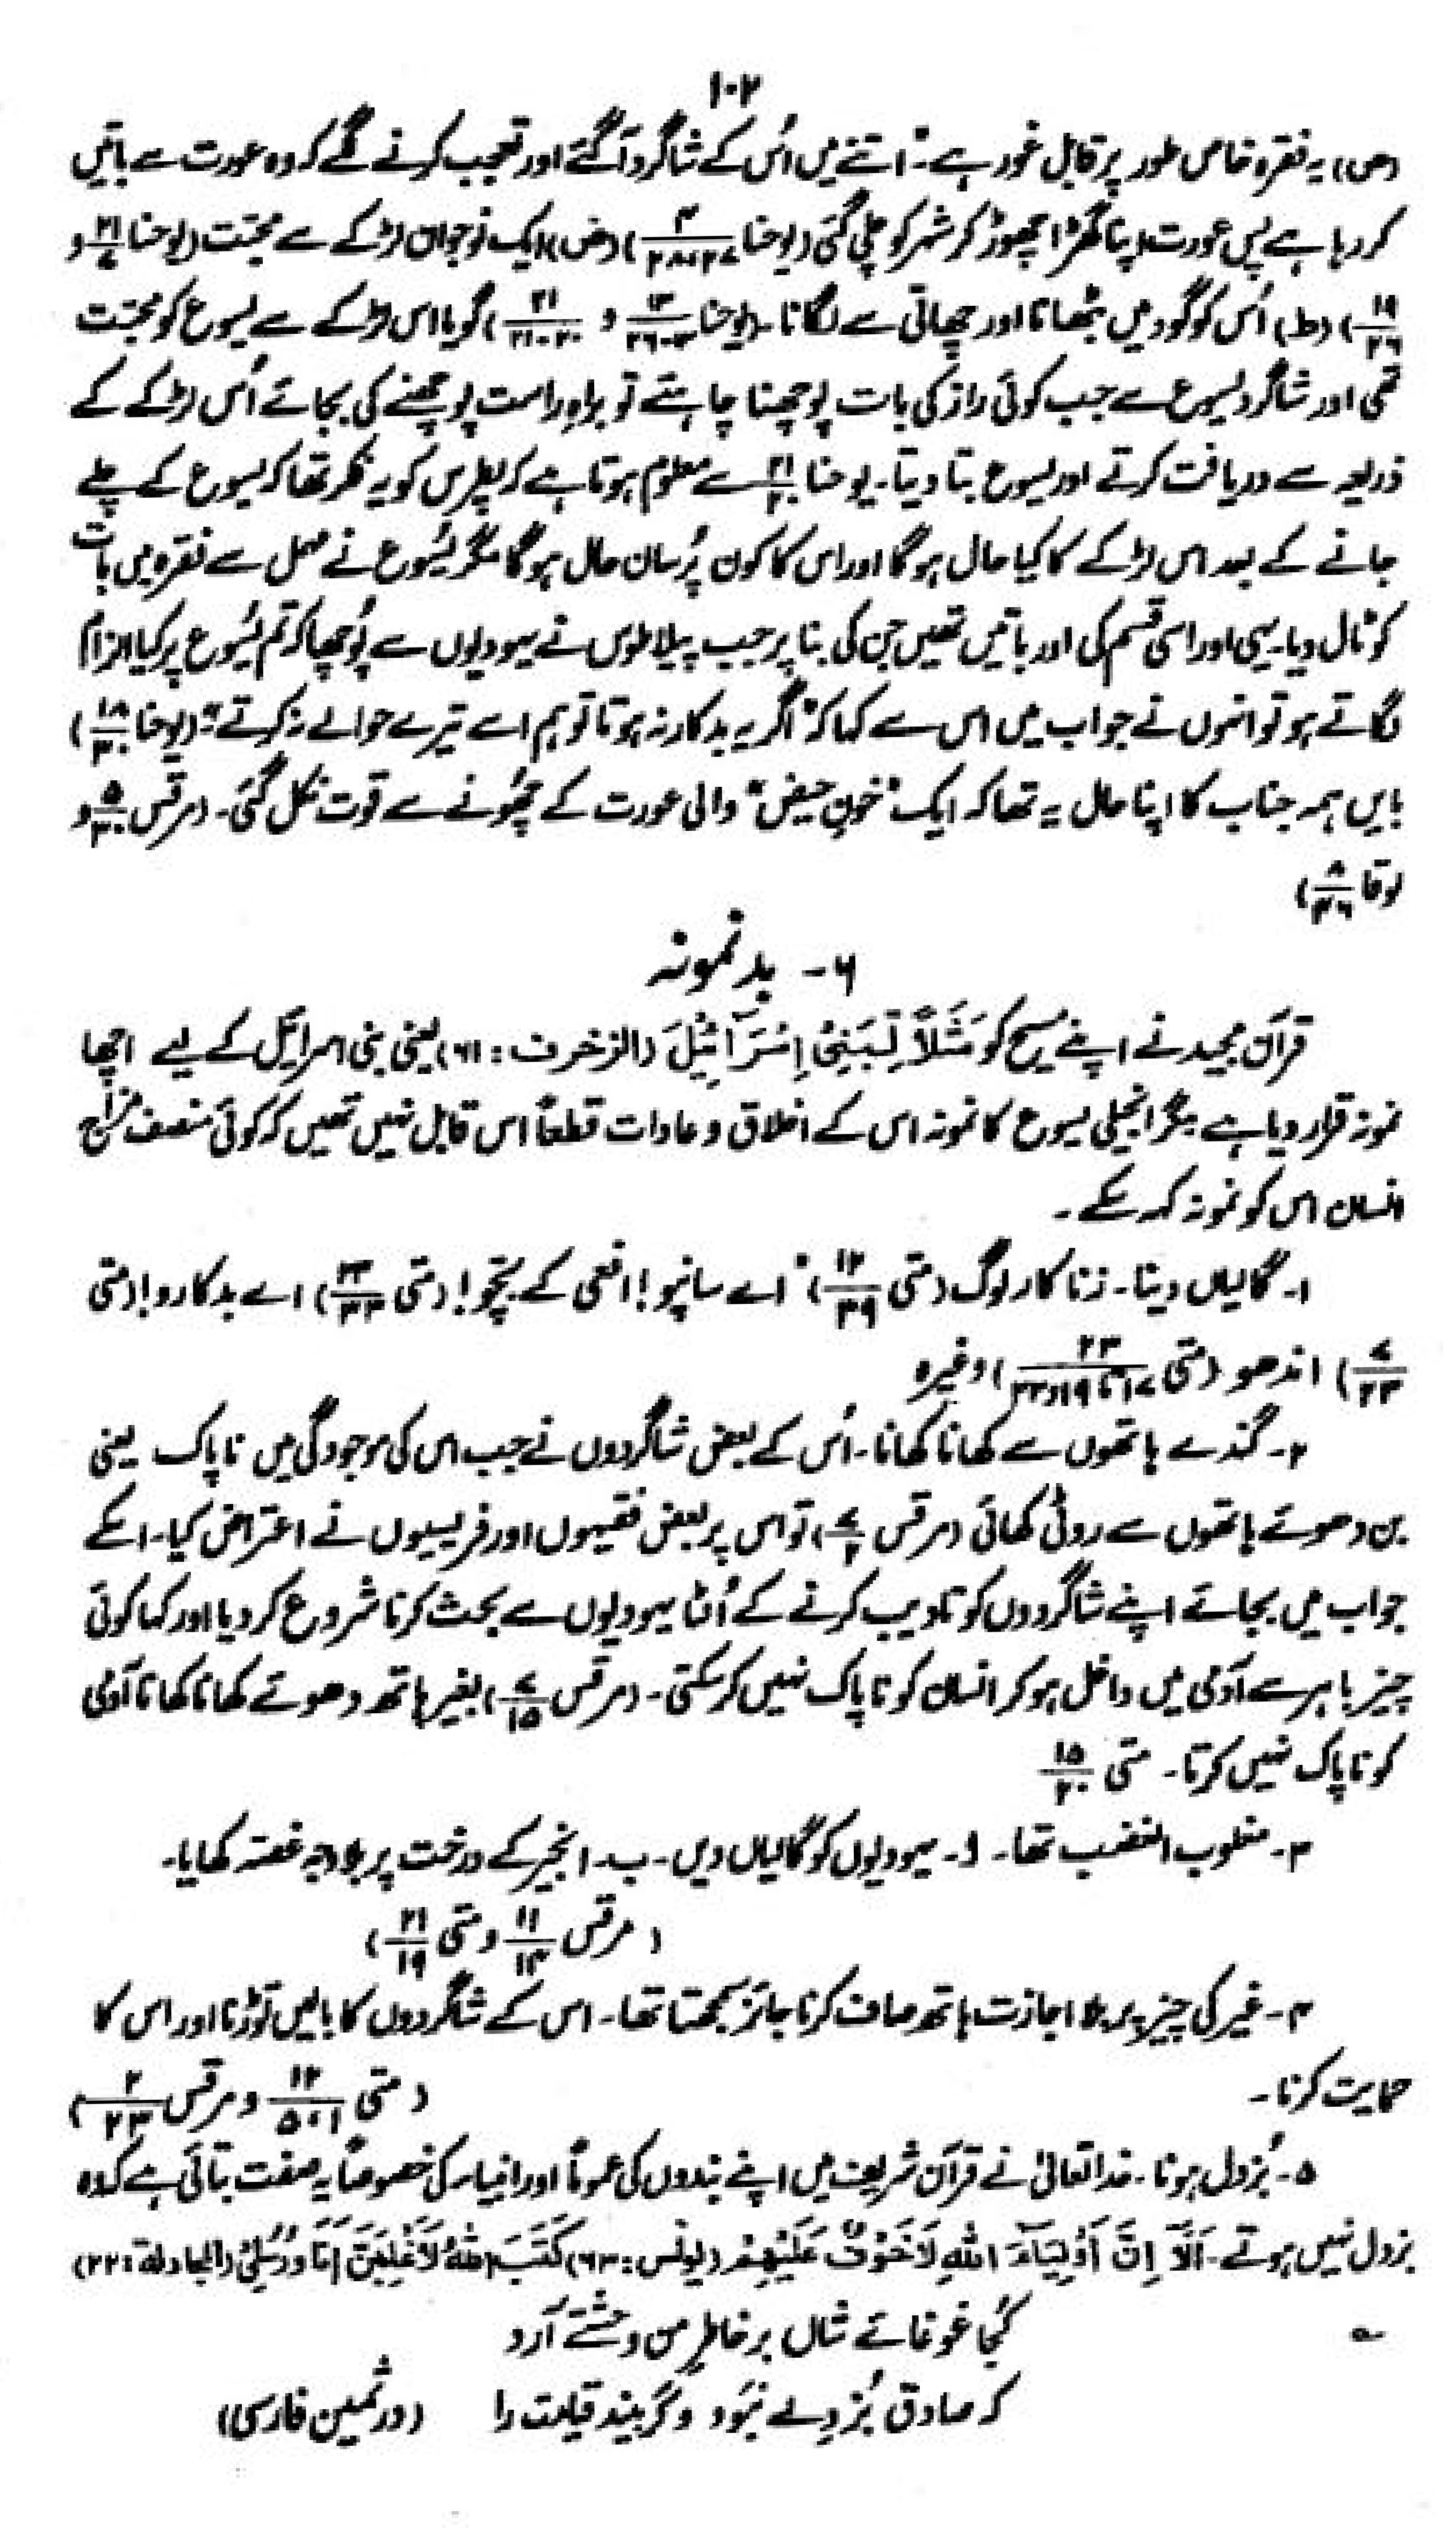 ۱۰۲
(ص) یہ فقرہ خاص طور پر قابل غور ہے۔ "اتنے میں اُس کے شاگرد آ گئے اور تعجب کرنے لگے کہ وہ عورت سے باتیں
کر رہا ہے پس عورت اپنا گھڑا چھوڑ کر شہر کو چلی گئی (یوحنا ۴/۲۷،۲۸) (ض) ایک نوجوان لڑکے سے محبّت (یوحنا ۲۱/۷ و
۱۹/۲۶) (ط) اُس کو گود میں بٹھانا اور چھاتی سے لگانا۔ (یوحنا ۱۳/۲۳-۲۶ و ۲۱/۲۰-۲۱) گویا اس لڑکے سے یسوع کو محبّت
تھی اور شاگرد یسوع سے جب کوئی راز کی بات پوچھنا چاہتے تو براہِ راست پوچھنے کی بجائے اُس لڑکے کے
ذریعہ سے دریافت کرتے اور یسوع بتا دیتا۔ یوحنا ۲۱/۲۰ سے معلوم ہوتا ہے کہ پطرس کو یہ فکر تھا کہ یسوع کے چلے
جانے کے بعد اس لڑکے کا کیا حال ہو گا اور اس کا کون پُرسان حال ہو گا مگر یُسوع نے مہمل سے فقرہ میں بات
کو ٹال دیا۔ یہی اور اسی قسم کی اور باتیں تھیں جن کی بنا پر جب پیلاطوس نے یہودیوں سے پُوچھا کہ تم یُسوع پر کیا الزام
لگاتے ہو تو انہوں نے جواب میں اس سے کہا کہ "اگر یہ بدکار نہ ہوتا تو ہم اسے تیرے حوالے نہ کرتے" (یوحنا ۱۸/۳۰)
بایں ہمہ جناب کا اپنا حال یہ تھا کہ ایک "خونِ حیض" والی عورت کے چُھونے سے قوت نکل گئی۔ (مرقس ۵/۳۰ و
لوقا ۸/۴۶)
۶- بد نمونہ
قرآن مجید نے اپنے مسیح کو مَثَلًا لِّبَنِیْٓ اِسْرَآئِیْلَ (الزخرف : ۶۱) یعنی بنی اسرائیل کے لیے اچھا
نمونہ قرار دیا ہے مگر انجیلی یسوع کا نمونہ اس کے اخلاق و عادات قطعاً اس قابل نہیں تھیں کہ کوئی منصف مزاج
انسان اس کو نمونہ کہہ سکے۔
۱۔ گالیاں دینا۔ زنا کار لوگ (متی ۱۲/۳۹) "اے سانپو! افعی کے بچّو! (متی ۲۳/۳۳) اے بدکارو! (متی
۷/۲۳) اندھو (متی ۲۳/۱۷ تا ۱۹ و ۲۳) وغیرہ
۲۔ گندے ہاتھوں سے کھانا کھانا۔ اُس کے بعض شاگردوں نے جب اس کی موجودگی میں ناپاک یعنی
بن دھوئے ہاتھوں سے روٹی کھائی (مرقس ۷/۲) تو اس پر بعض فقیہوں اور فریسیوں نے اعتراض کیا۔ اسکے
جواب میں بجائے اپنے شاگردوں کو تادیب کرنے کے اُلٹا یہودیوں سے بحث کرنا شروع کر دیا اور کہا کوئی
چیز باہر سے آدمی میں داخل ہو کر انسان کو ناپاک نہیں کر سکتی۔ (مرقس ۷/۱۵) بغیر ہاتھ دھوئے کھانا کھانا آدمی
کو ناپاک نہیں کرتا۔ متی ۱۵/۲۰
۳۔ مغلوب الغضب تھا۔ ا۔ یہودیوں کو گالیاں دیں۔ ب۔ انجیر کے درخت پر بلا وجہ غصّہ کھایا۔
(مرقس ۱۱/۱۳ و متی ۲۱/۱۹)
۴۔ غیر کی چیز پر بلا اجازت ہاتھ صاف کرنا جائز سمجھتا تھا۔ اس کے شاگردوں کا بالیں توڑنا اور اس کا
حمایت کرنا۔ (متی ۱۲/۱،۵ و مرقس ۲/۲۳)
۵۔ بُزدل ہونا۔ خدا تعالیٰ نے قرآن شریف میں اپنے بندوں کی عموماً اور انبیاء کی خصوصاً یہ صفت بتائی ہے کہ وہ
بزدل نہیں ہوتے۔ اَلَآ اِنَّ اَوْلِیَآءَ اللّٰہِ لَاخَوْفٌ عَلَیْہِمْ (یونس : ۶۳) کَتَبَ اللّٰہُ لَاَغْلِبَنَّ اَنَا وَرُسُلِیْ (المجادلۃ : ۲۲)
؎ کُجا غوغائے شاں بر خاطرِ من وحشتے آرد
کہ صادق بُزدلے نبَود وگر بیند قیامت را (درثمین فارسی)